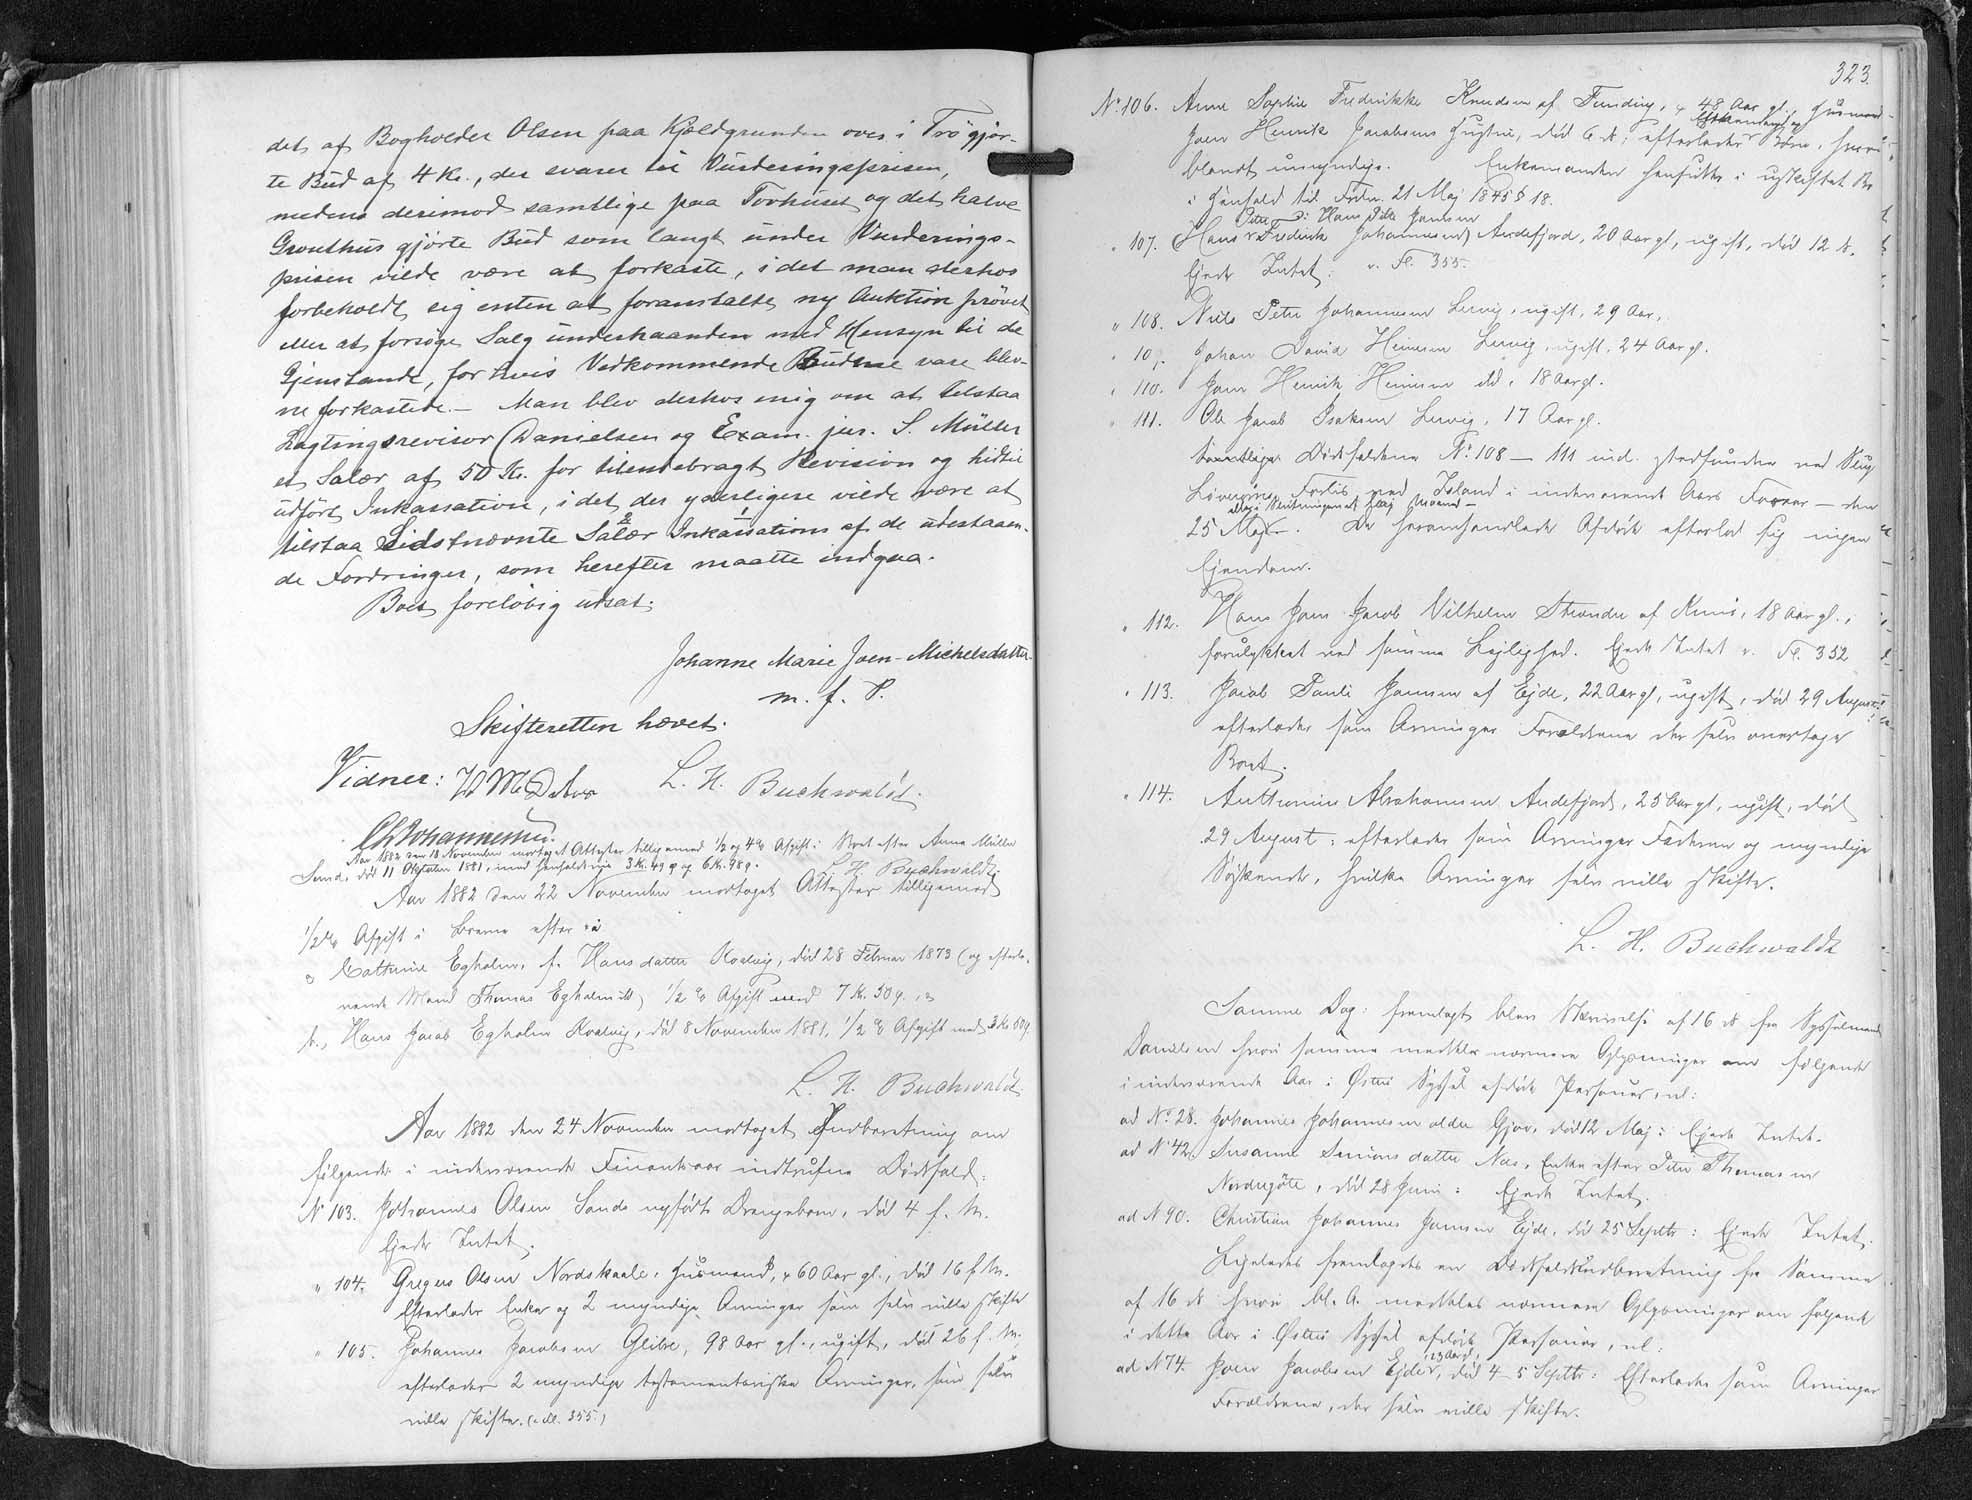 det af Bogholder Olsen paa Kjældgrunden over i Trö gjor-
te Bud af 4 Kr., der svarer til Vurderingsprisen,
medens derimod samtlige paa Torhuset og det halve
Grouthus gjorte Bud som langt under Vurderings-
prisen vilde være at forkaste, idet man derhos
forbeholdt sig enten at foranstalte ny Auktion prøvet
eller at forsøge Salg underhaanden med Hensyn til de
Gjenstande, for hvis Vedkommende Budene vare blev-
ne forkastede. — Man blev derhos enig om at tilstaa
Lagtingsrevisor Danielsen og Exam. jur. S. Müller
et Salær af 50 Kr. for tilendebragt Revision og hidtil
udført Inkassation, idet der yderligere vilde være at
tilstaa Sidstnævnte Salær Inkassations af de udestaaen-
de Fordringer, som herefter maatte indgaa.
Boet foreløbig udsat.
Johanne Marie Joen-Michelsdatter
m. f. P.
Skifteretten hævet.
Vidner: L. H. Buchwaldt.
Aar 1882 den 18 November modtaget Attester tilligemed 1/2 og 4% Afgift i Boet efter Anna Müller
Sand, død 11 Oktober 1881, med henholdsvis 3 Kr. 49 ø og 6 Kr. 98 ø. L. H. Buchwaldt.
Aar 1882 den 22 November modtaget Attester tilligemed
1/2 % Afgift i Boerne efter
a Cathrine Egholm, f. Hansdatter Kvalvig, død 28 Februar 1873 (og efterle-
vende Mand Thomas Egholm ibd) 1/2 % Afgift med 7 Kr. 50 ø.
b., Hans Jacob Egholm Kvalvig, død 8 November 1881, 1/2 % Afgift med 3 Kr 50 ø.
L. H. Buchwaldt.
Aar 1882 den 24 November modtaget Indberetning om
følgende i indeværende Finantsaar indtrufne Dødsfald:
No 103. Johannes Olsen Sands nyfødt Drengebarn, død 4 f. M.
Ejede Intet.
" 104. Gregers Olsen Nordskaale, Husmand, 60 Aar gl., død 16 f. M.
Efterlader Enke og 2 myndige Arvinger som selv ville skifte
" 105. Johannes Jacobsen Glibre, 98 Aar gl., ugift, død 26 f. M.
efterlader 2 myndige testamentariske Arvinger, som selv
ville skifte. (v. Fl. 355.)
323.
No 106. Anne Sophie Fredrikke Knudsen af Funding, 48 Aar gl., Husmand
Joen Henrik Jacobsens Hustru, død 6 ds, efterlader Børn, hvori-
blandt umyndige. Enkemanden hensidder i uskiftet Bo
i Henhold til Frdn. 21 Maj 1845 § 18.
" 107. (Hans Fredrik Johannesen) Andefjord, 20 Aar gl, ugift, død 12 ds.
Ejede Intet. v. Fl. 355.
" 108. Niels Peter Johannesen Lervig, ugift, 29 Aar,
" 109. Johan David Heinesen Lervig, ugift, 24 Aar gl.
" 110. Joen Henrik Heinesen ibd, 18 Aar gl.
" 111. Ole Jacob Isaksen Lervig, 17 Aar gl.
Samtlige Dødsfaldene No 108 — 111 incl. stedfundne ved Slup
Løvenørns Forlis ved Island i indeværende Aars Foraar — den
25 Maj. De heromhandlede Afdøde efterlod sig ingen
Ejendom.
" 112. Hans Joen Jacob Vilhelm Strander af Kunø, 18 Aar gl.,
forulykket ved samme Lejlighed. Ejede Intet v. Fl. 352
" 113. Jacob Pauli Joensen af Ejde, 22 Aar gl, ugift, død 29 August:
efterlader som Arvinger Forældrene der selv overtage
Boet.
" 114. Anthonius Abrahamsen Andefjord, 25 Aar gl, ugift, død
29 August: efterlader som Arvinger Faderen og myndige
Søskende, hvilke Arvinger selv ville skifte.
L. H. Buchwaldt
Samme Dag: fremlagt blev Skrivelse af 16 ds fra Sysselmand
Danielsen hvori samme meddeler nærmere Oplysninger om følgende
i indeværende Aar i Østerø Syssel afdøde Personer, nl:
ad No 28. Johannes Johannesen ældre Gjov, død 12 Maj: Ejede Intet.
ad N 42. Susanne Simonsdatter Næs, Enke efter Peter Thomasen
Nordregöte, død 28 Juni: Ejede Intet.
ad N 90. Christian Johannes Joensen Ejde, død 25 Septbr: Ejede Intet.
Ligeledes fremlagdes en Dødsfaldsindberetning fra Samme
af 16 ds hvori bl. A. meddeles nærmere Oplysninger om følgende
i dette Aar i Østerø Syssel afdøde Personer, nl:
ad N 74. Joen Jacobsen Ejde, 23 Aar gl, død 4-5 Septbr: Efterlader som Arvinger
Forældrene, der selv ville skifte.